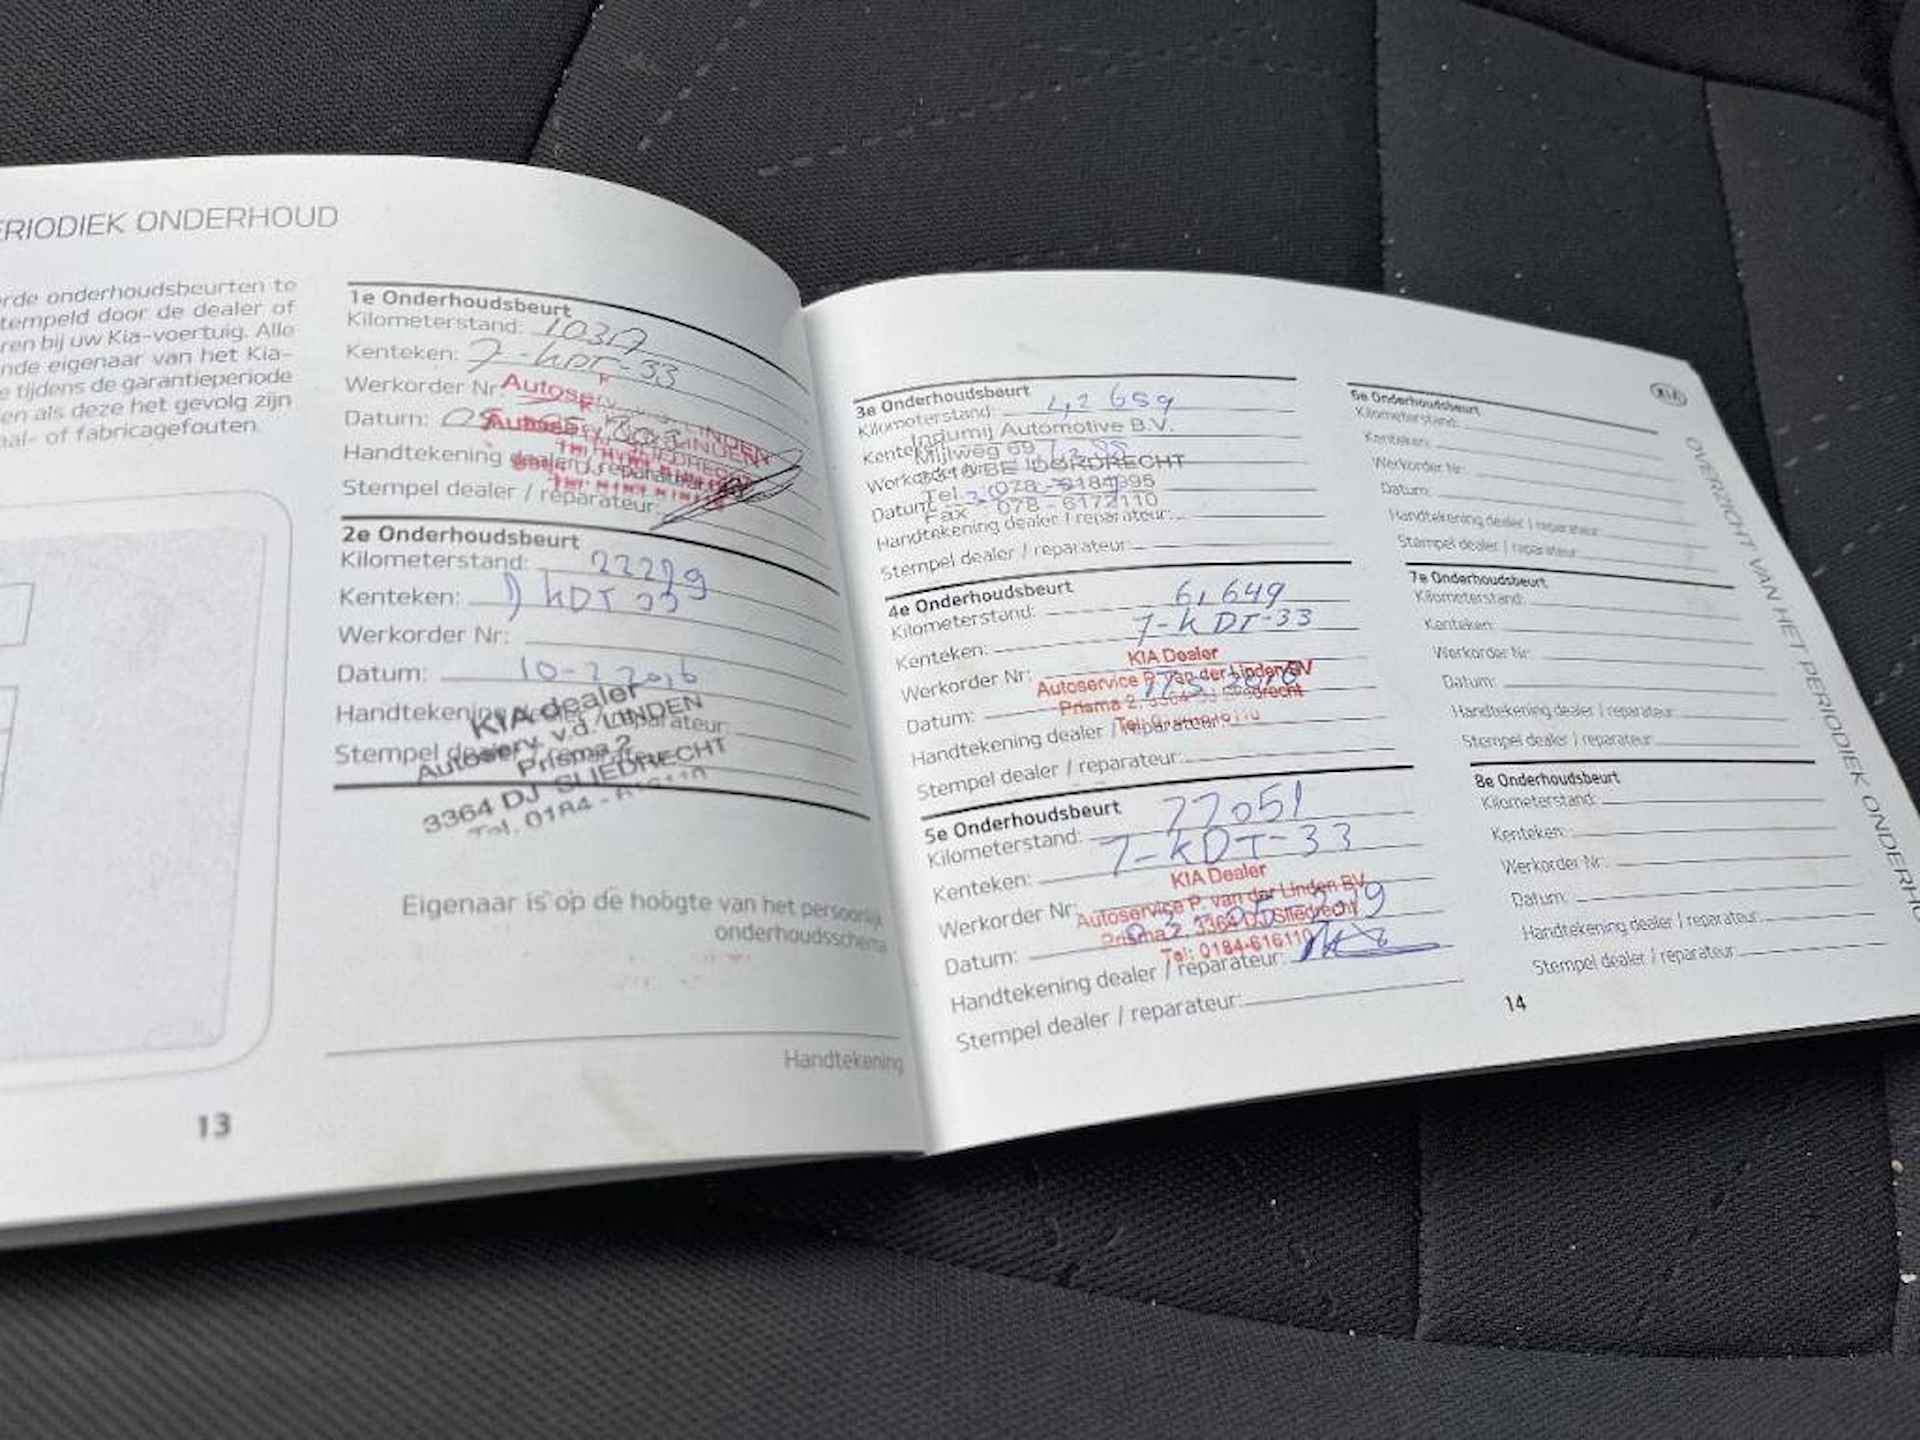 PERIODIEK ONDERHOUD
onderhoudsbeurten te
door de dealer of
bij uw Kia-voertuig. Alle
eigenaar van het Kia-
tijdens de garantieperiode
als deze het gevolg zijn
of fabricagefouten.
1e Onderhoudsbeurt
Kilometerstand:
Kenteken: 7-KDT-33
Werkorder Nr
Datum:
Handtekening dealer / reparateur
Stempel dealer / reparateur:
2e Onderhoudsbeurt
Kilometerstand: 22229
Kenteken: KDT 33
Werkorder Nr:
Datum: 10-2 2016
Handtekening dealer / reparateur
Stempel dealer / reparateur
KIA dealer
Autoserv. v.d. LINDEN
Prisma 2
3364 DJ SLIEDRECHT
Tel. 0184 -
Eigenaar is op de hoogte van het persoonlijk
onderhoudsschema
Handtekening
13
3e Onderhoudsbeurt
Kilometerstand: 42659
Ingumij Automotive B.V.
Kenteken
Mijlweg 69
Werkorder Nr
BE DORDRECHT
Tel. 078 -
Datum:
Fax 078 - 6172110
Handtekening dealer / reparateur:
Stempel dealer / reparateur:
4e Onderhoudsbeurt
Kilometerstand: 61649
Kenteken: 7-KDT-33
KIA Dealer
Werkorder Nr:
Autoservice P. van der Linden BV
Datum:
Prisma 2, 3364 DJ Sliedrecht
Handtekening dealer / reparateur
Stempel dealer / reparateur:
5e Onderhoudsbeurt
Kilometerstand: 77051
Kenteken: 7-KDT-33
KIA Dealer
Werkorder Nr:
Autoservice P. van der Linden BV
Prisma 2, 3364 DJ Sliedrecht
Datum:
Tel: 0184-616110
Handtekening dealer / reparateur:
Stempel dealer / reparateur:
6e Onderhoudsbeurt
Kilometerstand:
Kenteken:
Werkorder Nr:
Datum:
Handtekening dealer / reparateur:
Stempel dealer / reparateur:
7e Onderhoudsbeurt
Kilometerstand:
Kenteken:
Werkorder Nr:
Datum:
Handtekening dealer / reparateur:
Stempel dealer / reparateur:
8e Onderhoudsbeurt
Kilometerstand:
Kenteken:
Werkorder Nr:
Datum:
Handtekening dealer / reparateur:
Stempel dealer / reparateur:
14
KIA
OVERZICHT VAN HET PERIODIEK